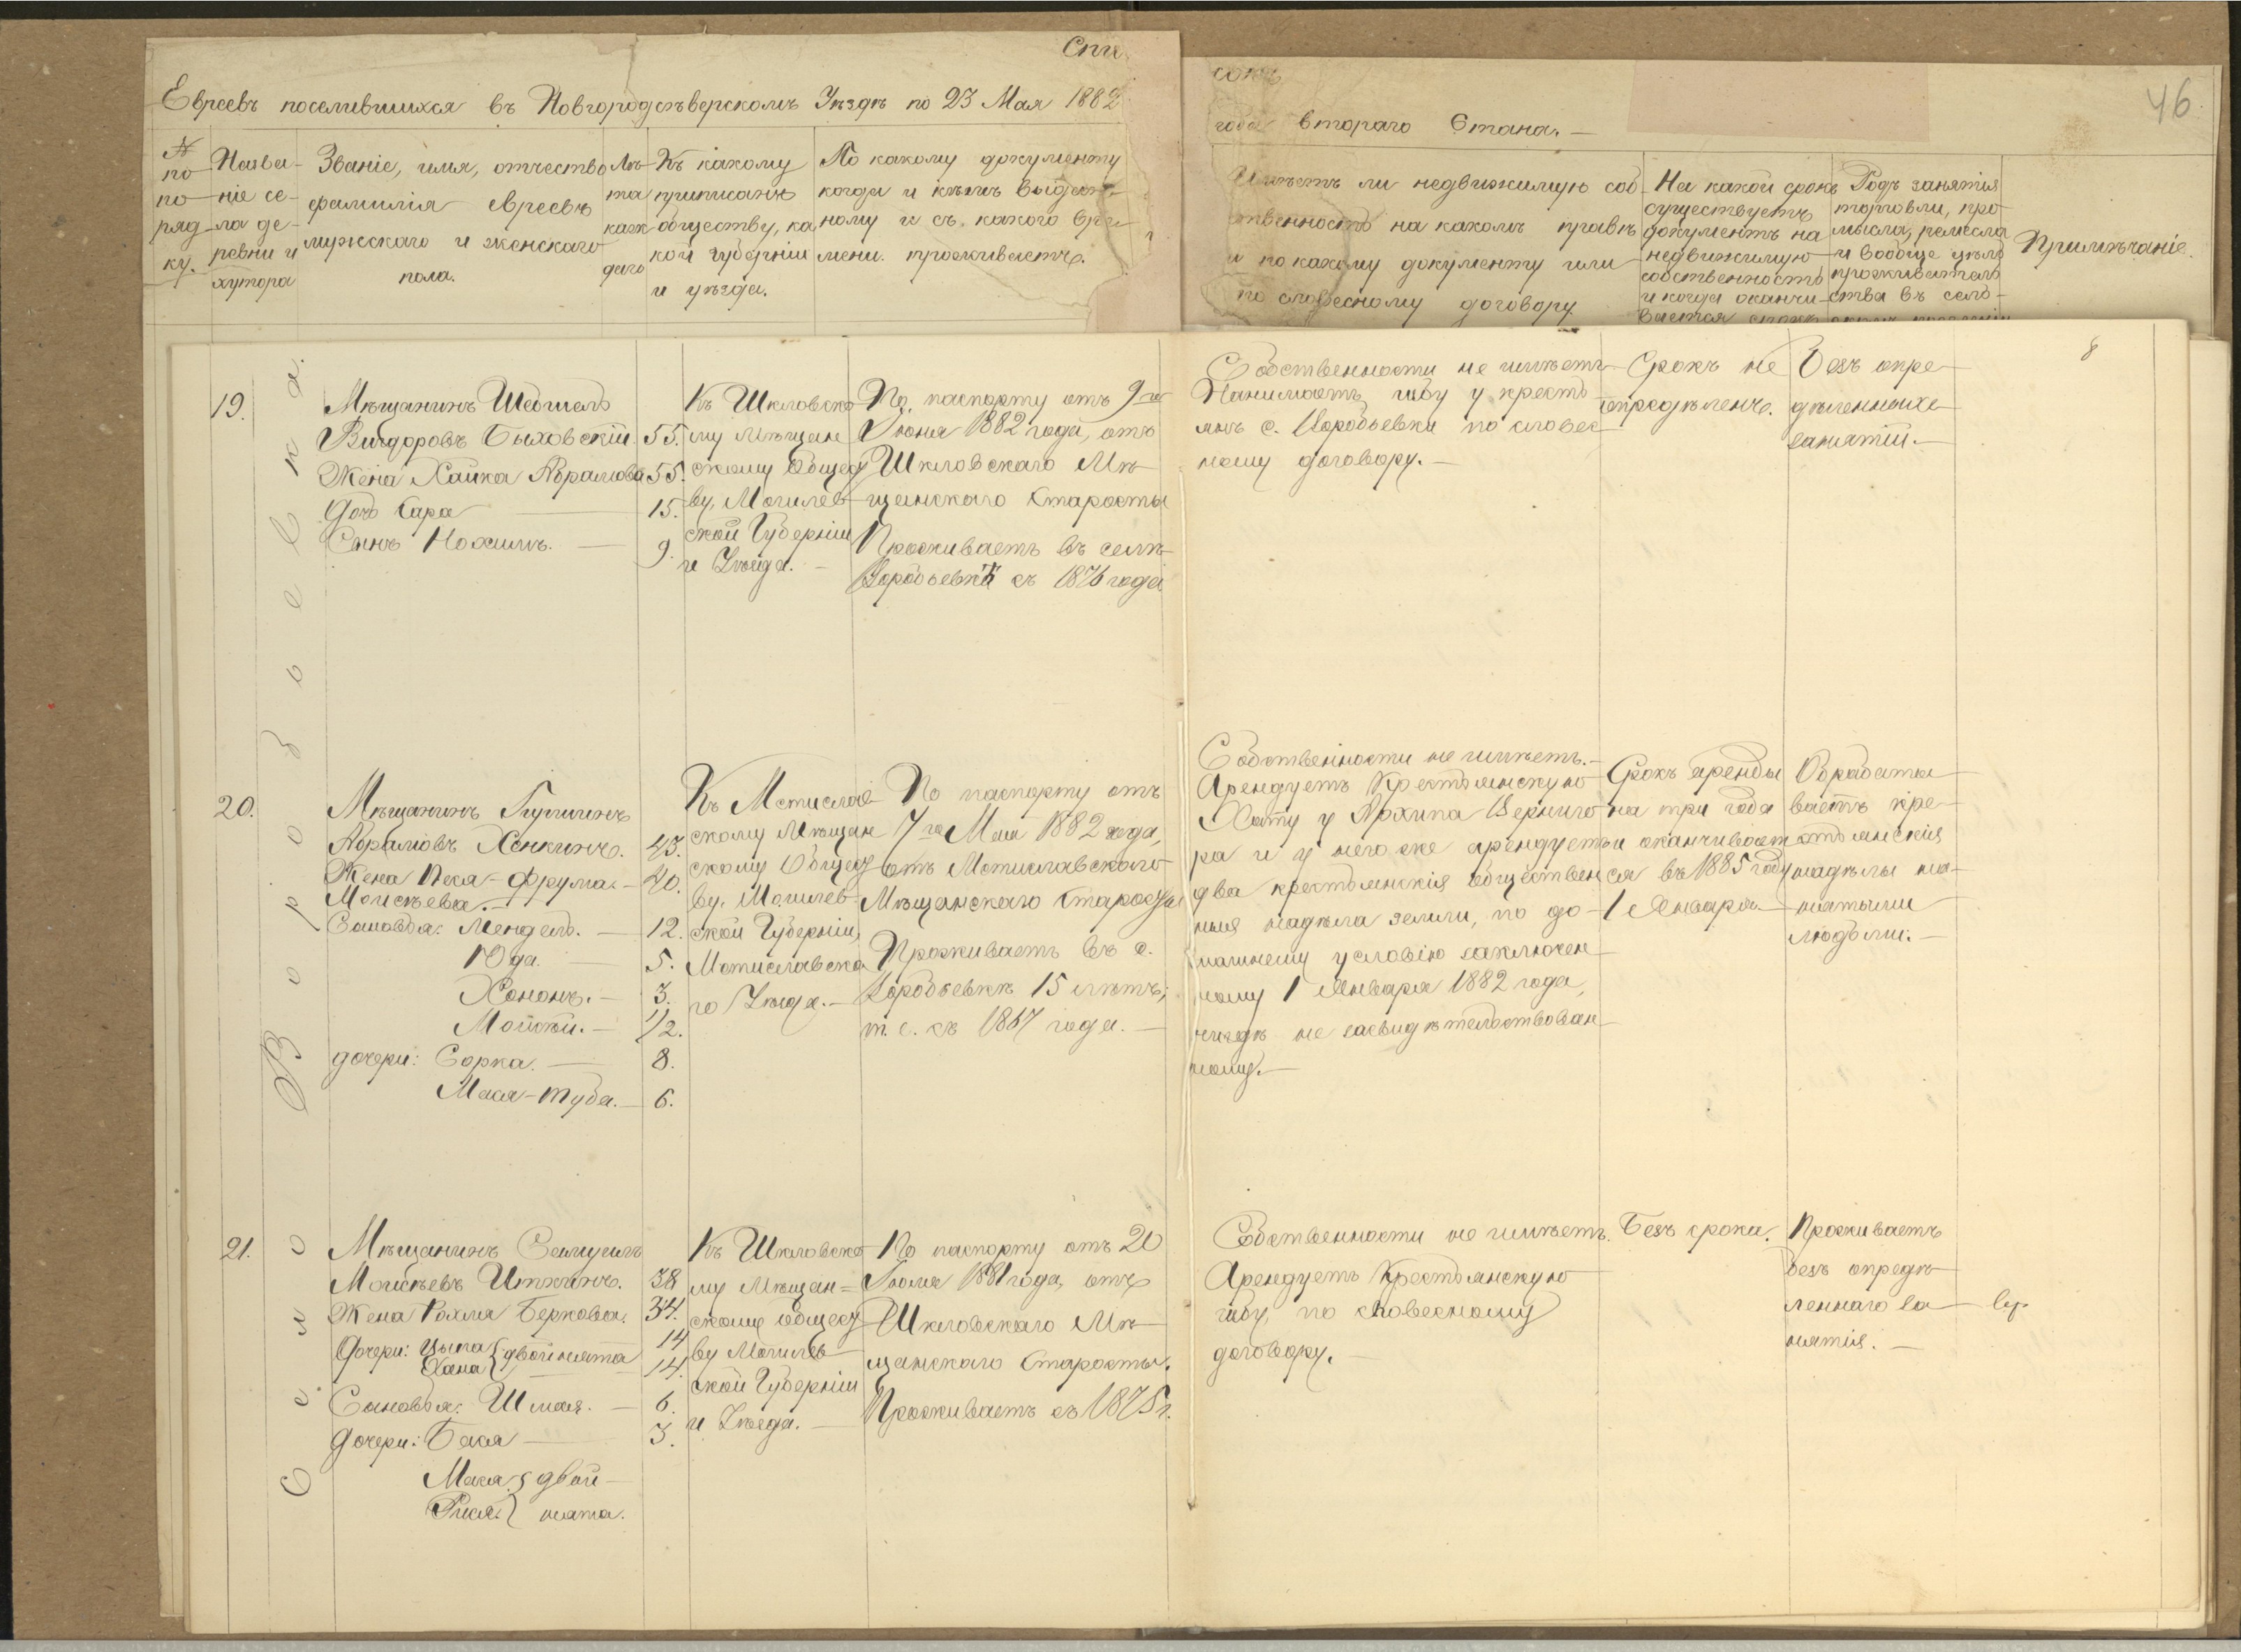 Спи
сокъ
46
Евреевъ поселившихся въ Новгородсѣверскомъ Уѣздѣ по 23 Мая 1882
года втораго Стана.
№ по поряд ку.
Назва-
ніе се-
ла де-
ревни и
хутора
Званіе, имя, отчество
фамилія евреевъ
мужскаго и женскаго
пола.
Лѣ-
та
каж
даго
Къ какому
приписанъ
обществу, ка
кой губерніи
и уѣзда.
По какому документу
когда и кѣмъ выдан-
ному и съ какого вре-
мени проживаетъ.
Имѣетъ ли недвижимую соб-
ственность на какомъ правѣ
и по какому документу или
по словесному договору
На какой срокъ
существуетъ
документъ на
недвижимую
собственность
и когда оканчи-
вается срокъ
Родъ занятія
торговли, про-
мысла, ремесла
и вообще цѣль
прожива­тель
ства въ сель-
Примѣчаніе.
8
Село Воробьевка.
19.
Мѣщанинъ Шевшель
Вигдоровъ Быховскій 55.
Жена Хайка Абрамова 55.
Дочь Сара 15.
Сынъ Нохимъ. 9.
Къ Шкловско
му Мѣщан
скому Общес
ву, Могилев
ской Губерніи
и Уѣзда.
По паспорту отъ 9го
Іюня 1882 года, отъ
Шкловскаго Мѣ-
щанскаго Старосты
Проживаетъ въ селѣ
Воробьевкѣ съ 1876 года
Собственности не имѣетъ
Нанимаетъ избу у крестъ
янъ с. Воробьевки по словес
ному договору.
Срокъ не
опредѣленъ.
Безъ опре-
дѣленныхъ
занятій.
20.
Мѣщанинъ Гушинъ
Абрамовъ Хенкинъ. 43.
Жена Песя-Фрума 40.
Моисѣева.
Сыновья: Мендель. 12.
Юда. 5.
Хононъ. 3.
Мойжи. 1/2.
дочери: Сорка. 8.
Мася-Туба. 6.
Къ Мстислав
скому Мѣщан
скому Общес
ву, Могилев
ской Губерніи,
Мстиславска
го Уѣзда.
По паспорту отъ
7го Мая 1882 года,
отъ Мстиславского
Мѣщанскаго Старосты
Проживаетъ въ с.
Воробьевкѣ 15 лѣтъ,
т. е. съ 1867 года.
Собственности не имѣетъ.
Арендуетъ Крестьянскую
Хату у Архипа Верниго
ра и у него же арендуетъ
два крестьянскія обществен
ныя надѣла земли, по до-
машнему условію заключен
ному 1 Января 1882 года,
нигдѣ не засвидѣтельствован
ному.
Срокъ аренды
на три года
и оканчивает
ся въ 1885 году
1 Января
Обрабаты
ваетъ кре-
стьянскія
надѣлы на-
нятыми
людьми.
21.
Мѣщанинъ Самуилъ
Моисѣевъ Иткинъ. 38
Жена Рохля Беркова. 34.
Дочери: Цыпа 14
Хана двойнята 14.
Сыновья: Шмая. 6.
Дочери: Бася 3.
Мася двой-
Рися. нята.
Къ Шкловско
му Мѣщан=
скому Общес
ву Могилев
ской Губерніи
и Уѣзда.
По паспорту отъ 20
Іюля 1881 года, отъ
Шкловскаго Мѣ-
щанскаго Старосты.
Проживаетъ съ 1875 г.
Собственности не имѣетъ.
Арендуетъ Крестьянскую
избу, по словесному
договору.
Безъ срока.
Проживаетъ
безъ опредѣ
леннаго за-
нятія.